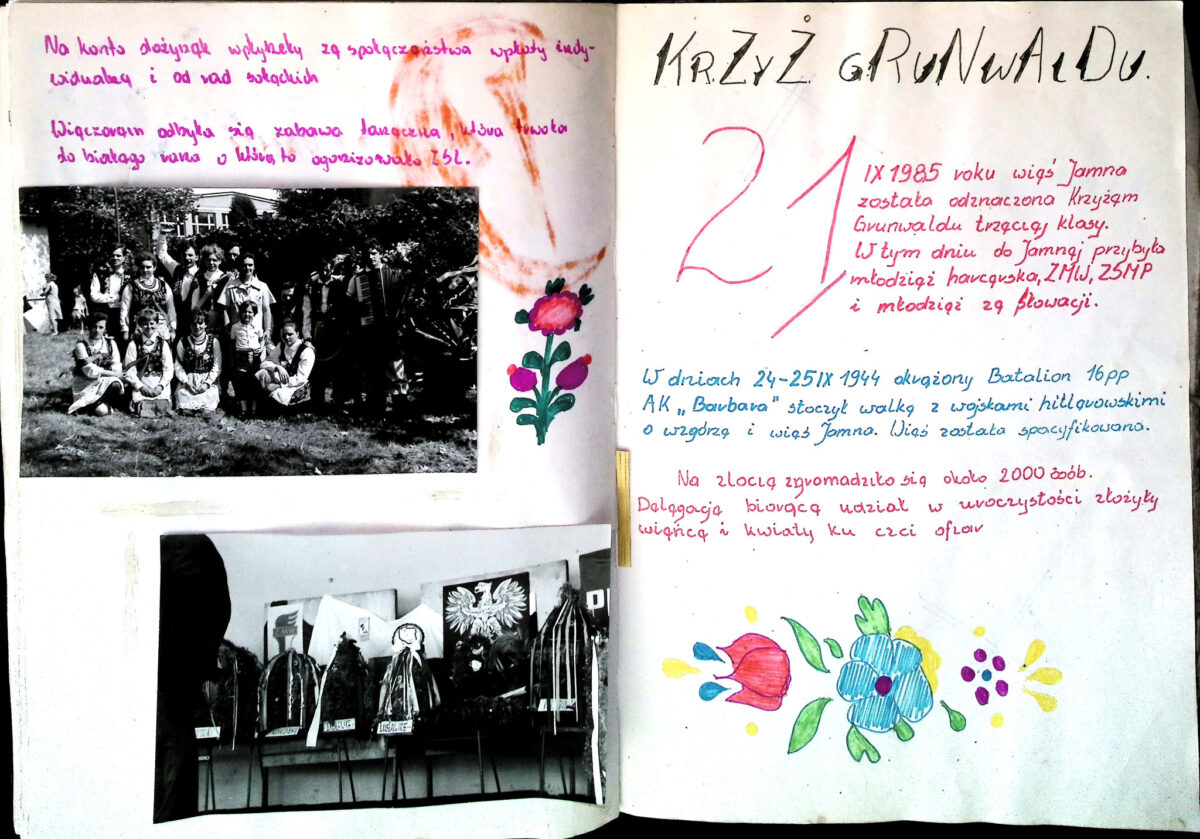 Na konto dożynek wpłynęły ze społeczeństwa wpłaty indy-
widualne i od rad sołeckich
Wieczorem odbyła się zabawa taneczna, która trwała
do białego rana a którą to organizowało ZSL.
LUSŁAWICE
KRZYŻ GRUNWALDU.
21
IX 1985 roku wieś Jamna
została odznaczona Krzyżem
Grunwaldu trzeciej klasy.
W tym dniu do Jamnej przybyła
młodzież harcerska, ZMW, ZSMP
i młodzież ze Słowacji.
W dniach 24-25 IX 1944 okrążony Batalion 16pp
AK „Barbara" stoczył walkę z wojskami hitlerowskimi
o wzgórze i wieś Jamna. Wieś została spacyfikowana.
Na zlocie zgromadziło się około 2000 osób.
Delegacje biorące udział w uroczystości złożyły
wieńce i kwiaty ku czci ofiar